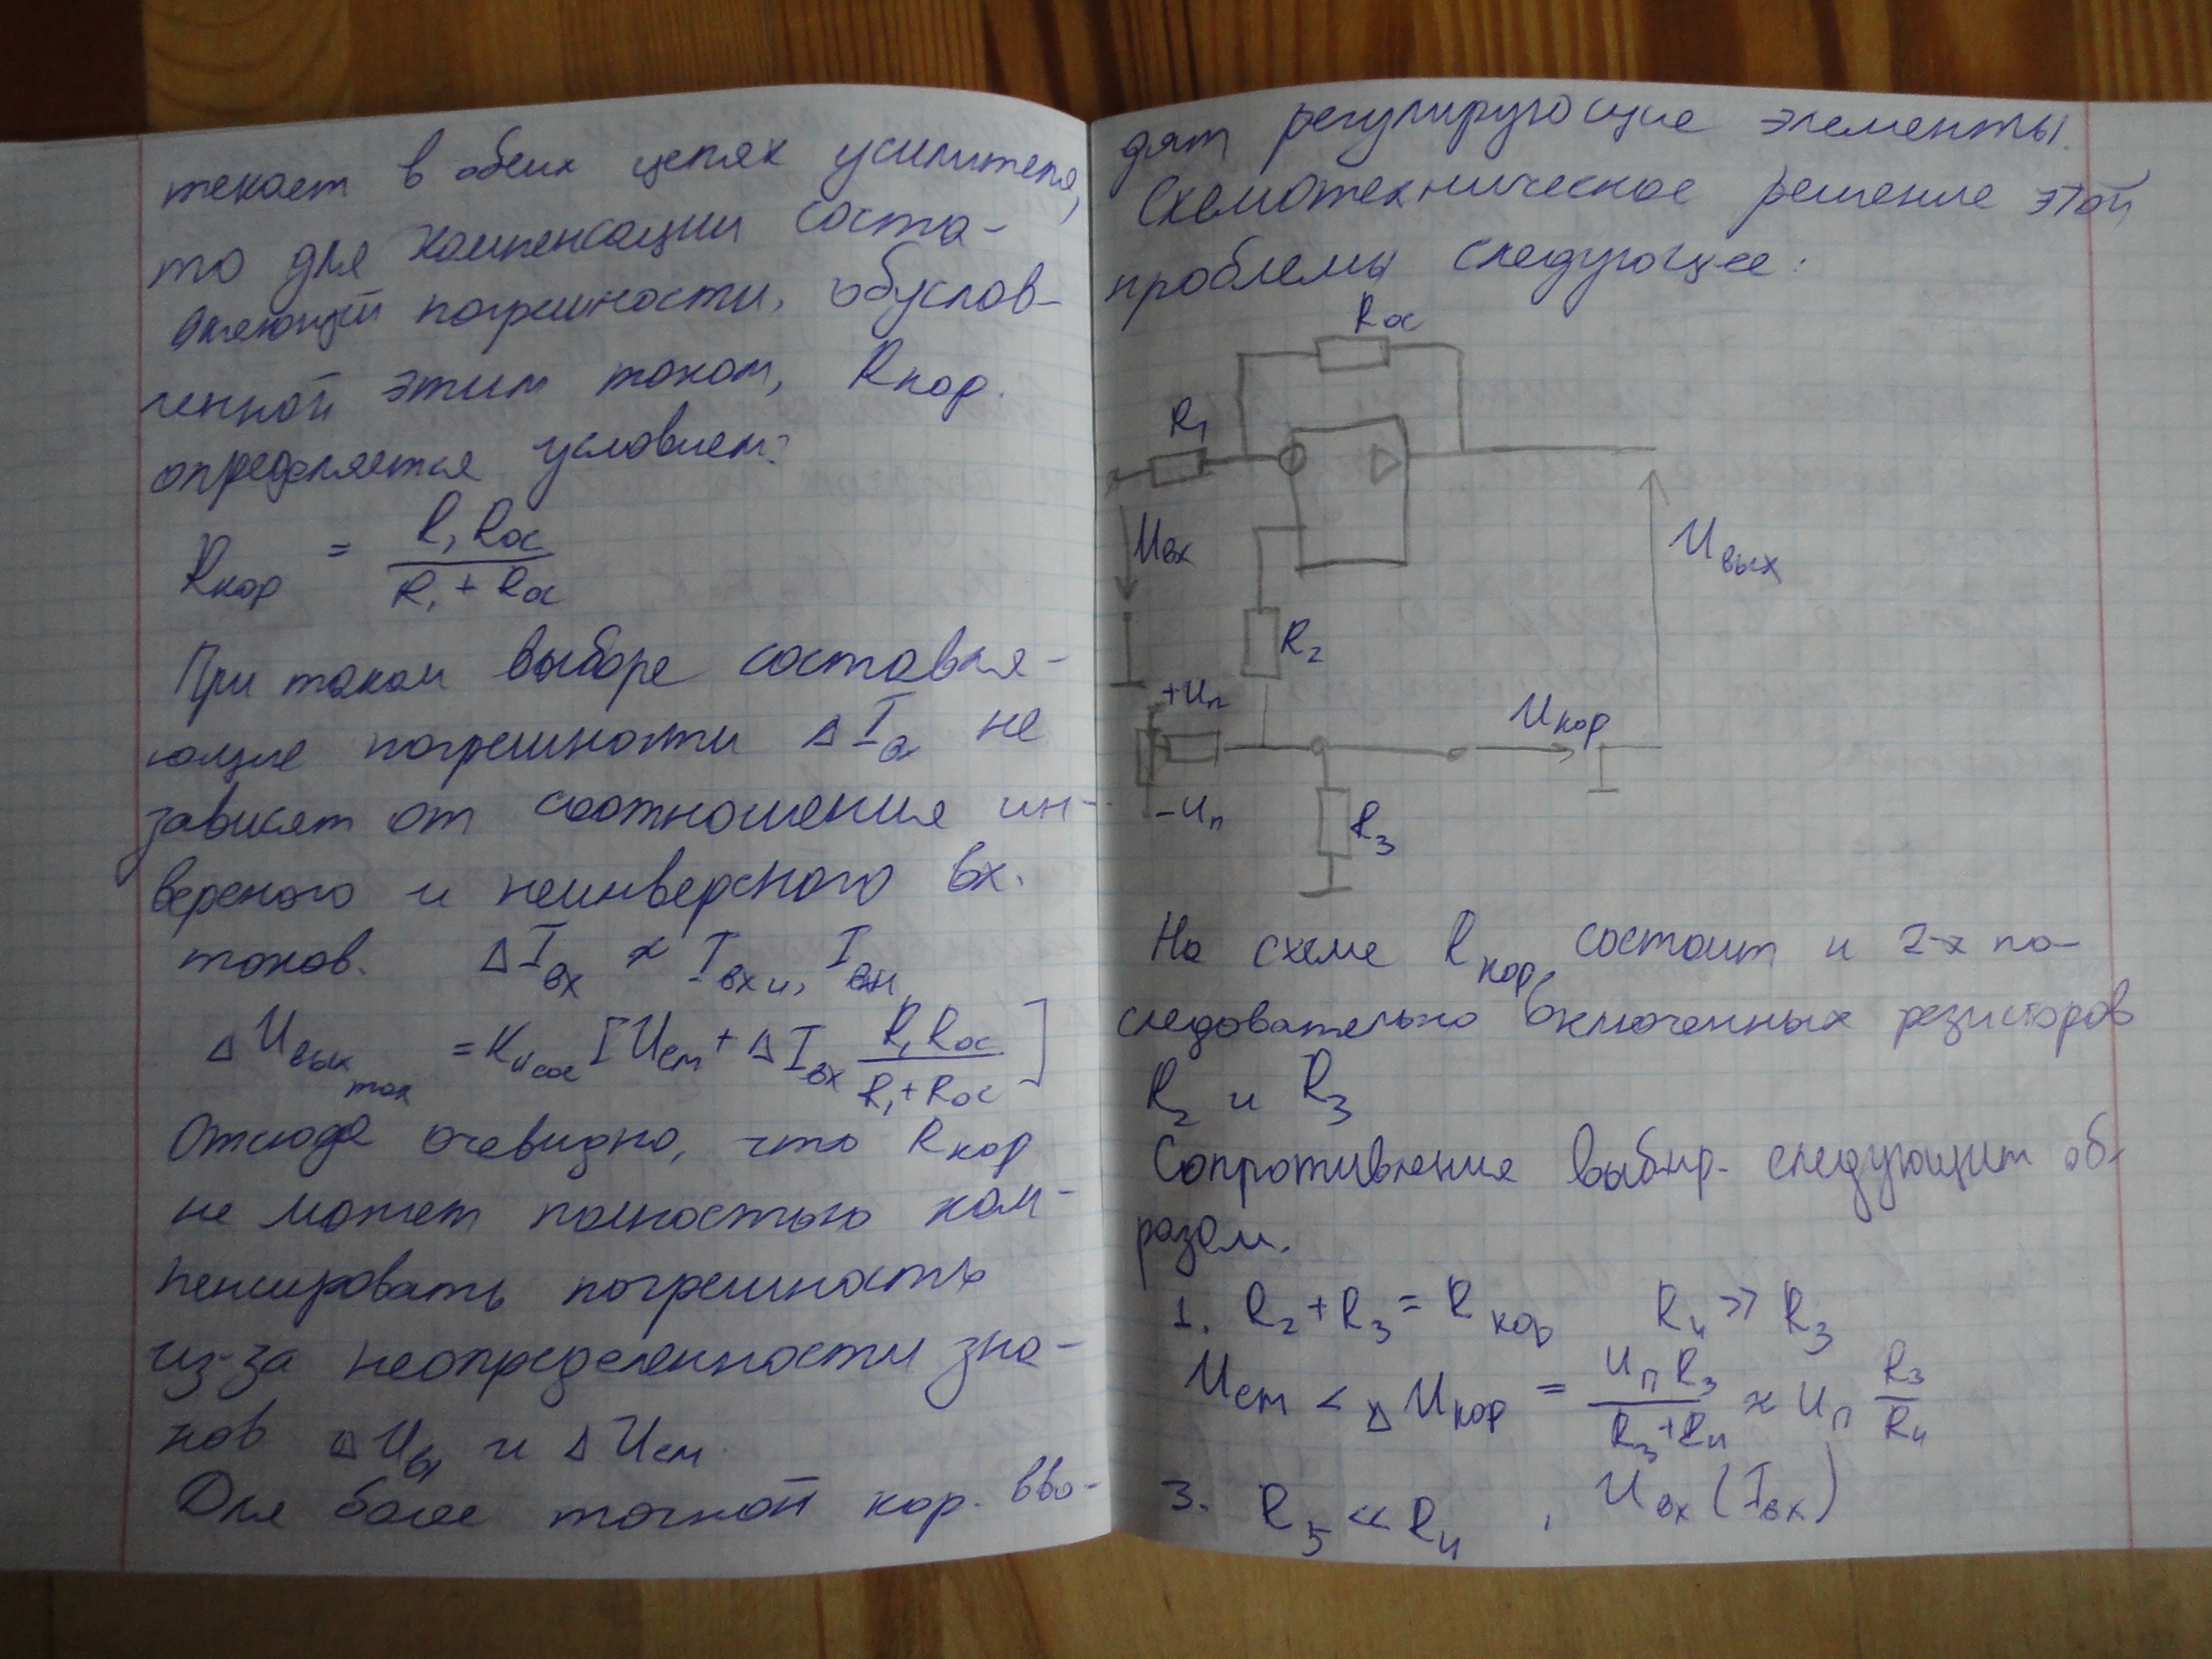 текает в обеих цепях усилителя,
то для компенсации соста-
вляющей погрешности, обуслов-
ленной этим током, Rкор.
определяется условием:
Rкор = R₁ Rос / (R₁ + Rос)
При таком выборе составля-
ющие погрешности ΔIвх не
зависят от соотношения ин-
версного и неинверсного вх.
токов. ΔIвх ≈ Iвхи, Iвхн
ΔUвых max = Kисос [Uсм + ΔIвх R₁ Rос / (R₁ + Rос)]
Отсюда очевидно, что Rкор
не может полностью ком-
пенсировать погрешность
из-за неопределенности зна-
ков ΔUвх и ΔUсм.
Для более точной кор. вво-
дят регулирующие элементы.
Схемотехническое решение этой
проблемы следующее:
Rос
R₁
Uвх
Uвых
R₂
+Uп
Uкор
-Uп
R₃
На схеме Rкор состоит и 2-х по-
следовательно включенных резисторов
R₂ и R₃
Сопротивления выбир. следующим об-
разом.
1. R₂ + R₃ = Rкор R₄ >> R₃
Uсм < ΔUкор = Uп R₃ / (R₃ + R₄) ≈ Uп R₃ / R₄
3. R₅ << R₄ , Uвх (Iвх)